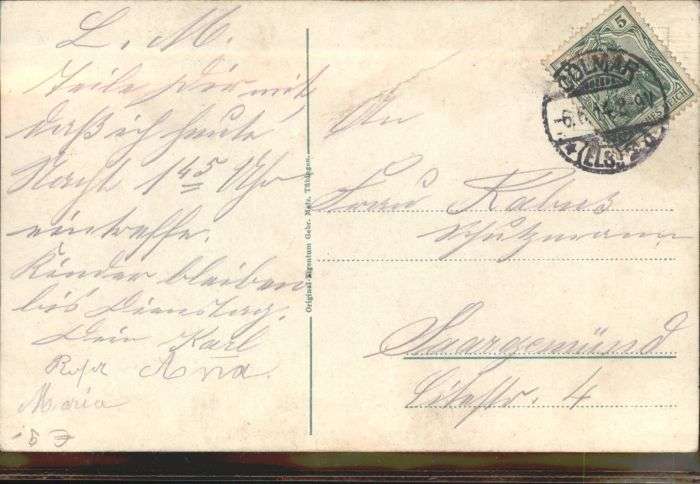 L. M.
Teile Dir mit,
daß ich heute
Nacht 1 45 Uhr
eintreffe.
Kinder bleiben
bis Dienstag.
Dein Karl
Maria
Original-Eigentum Gebr. Metz, Tübingen.
An
Frau Rabus
Schutzmann
Saargemünd
4
5
COLMAR
(ELS)